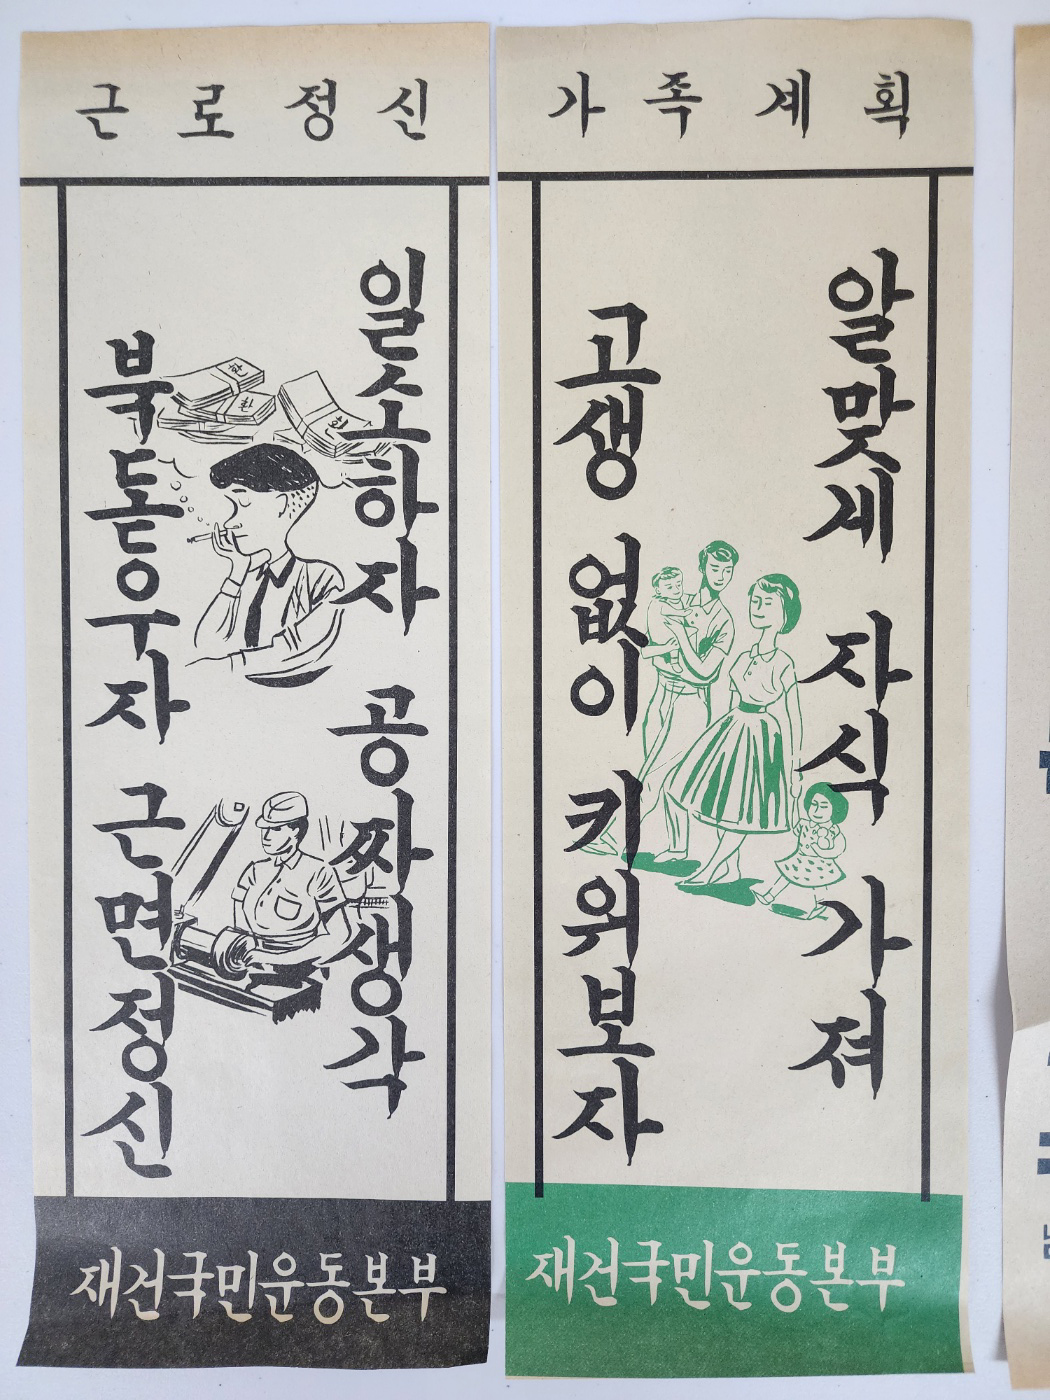 근로정신
일소하자 공짜생각
북돋우자 근면정신
재건국민운동본부
가족계획
알맞게 자식 가져
고생 없이 키워보자
재건국민운동본부